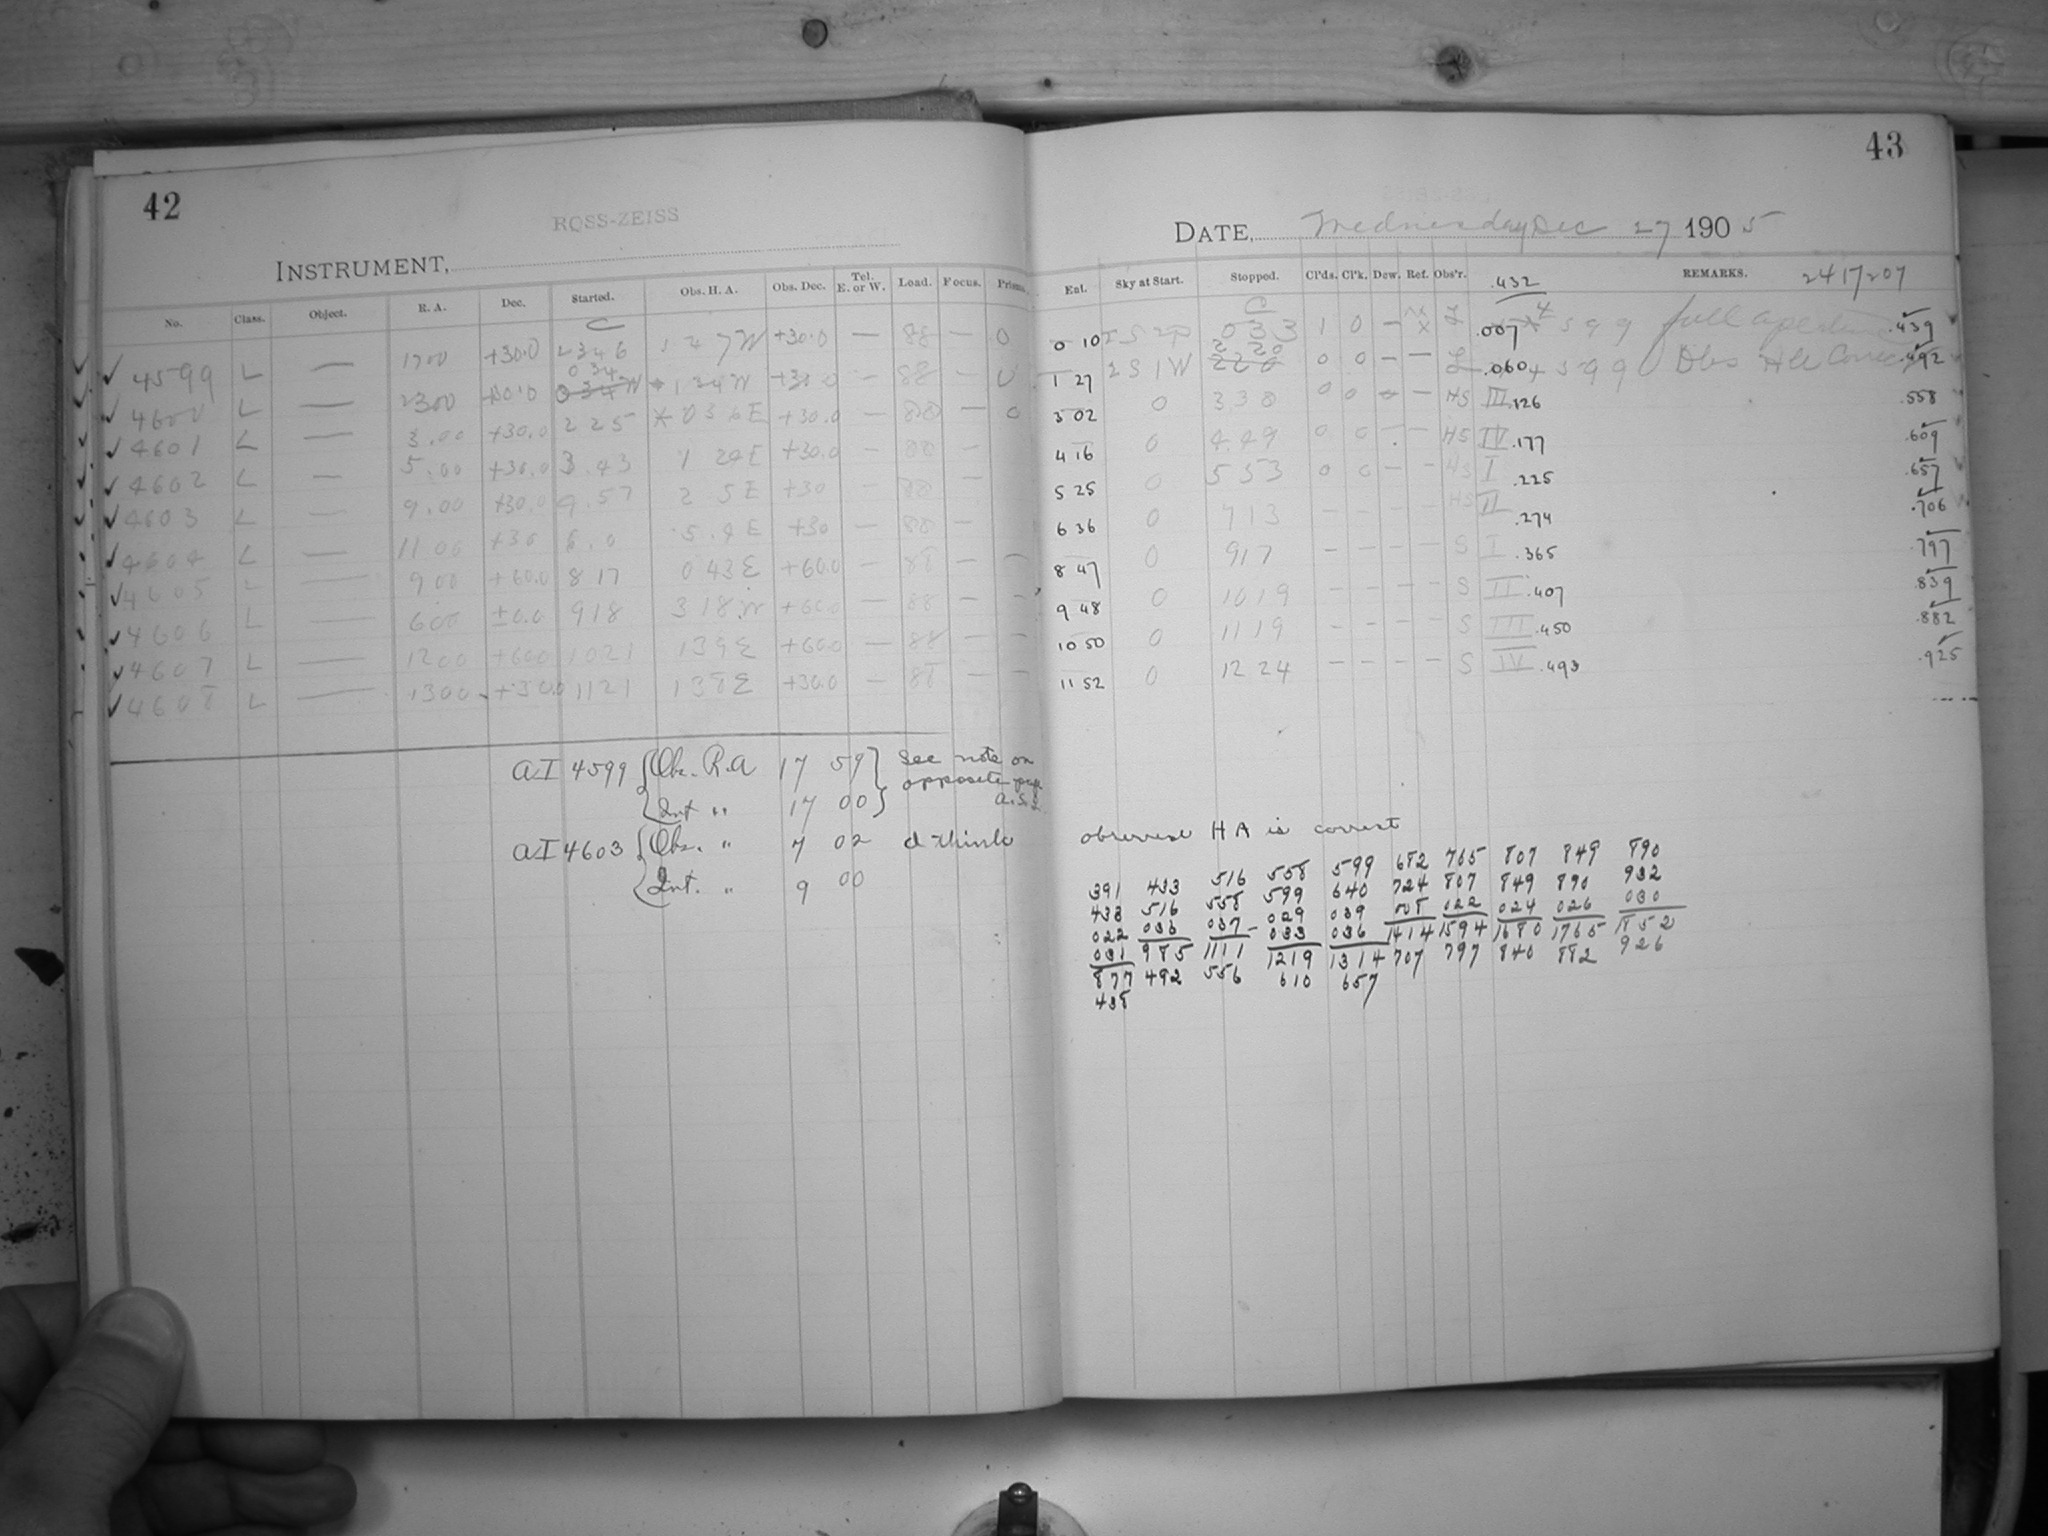 42
ROSS-ZEISS
INSTRUMENT,
No. Class. Object. R. A. Dec. Started. Obs. H. A. Obs. Dec. Tel. E. or W. Load. Focus. Prisms.
C
4599 L — 1700 +30.0 2346 147W +30.0 — 88 — 0
034
4600 L — 2300 034 W 134W +30.0 — 88 — 0
4601 L — 3.00 +30.0 225 036E +30.0 — 88 — 0
4602 L — 5.00 +30.0 3.43 1 29E +30.0 — 88 —
4603 L — 9.00 +30.0 2 5E +30 — 88 —
4604 L — 11 00 +30 6.0 +30 — 88 —
4605 L — 900 +60.0 817 043E +60.0 — 88 — —
4606 L — 600 ±0.0 918 318W +60.0 — 88 — —
4607 L — 1200 +60.0 1021 139E +60.0 — 88 — —
4608 L — 1300 +30.0 1121 138E +30.0 — 88 — —
AI 4599 { Obs. R.A 17 59 } See note on
opposite page
{ Int " 17 00 } A.S.
AI 4603 { Obs. " 7 02 I think
{ Int. " 9 00
43
DATE, Wednesday Dec 27 1905
Ent. Sky at Start. Stopped. Cl'ds. Cl'k. Dew. Ref. Obs'r. .432 REMARKS. 2417207
C
0 10 033 1 0 — .007 4599 full aperture .439
2 20
1 27 2 S 1 W 220 0 0 — — L .060 4599 Obs HA Correct .492
3 02 0 338 0 0 — — HS III .126 .558
4 16 0 4.49 0 0 — — HS IV .177 .609
5 25 0 553 0 0 — — HS I .225 .657
6 36 0 713 — — — — HS II .274 .706
8 47 0 917 — — — — S I .365 .797
9 48 0 1019 — — — — S II .407 .839
10 50 0 1119 — — — — S III .450 .882
11 52 0 1224 — — — — S IV .493 .925
observed HA is correct
391 433 516 558 599 682 765 807 849 890
433 516 558 599 640 724 807 849 890 932
022 036 037 029 039 008 022 024 026 030
031 985 1111 033 036 1414 1594 1680 1765 1852
877 492 556 1219 1314 707 797 840 882 926
438 610 657